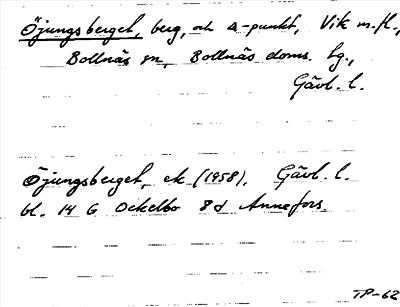 Öjungsberget, berg, och Δ-punkt, Vik m.fl.,
Bollnäs sn, Bollnäs doms. hg.,
Gävl. l.
Öjungsberget, ek (1958). Gävl. l.
bl. 14 G Ockelbo 8d Annefors.
TP-62